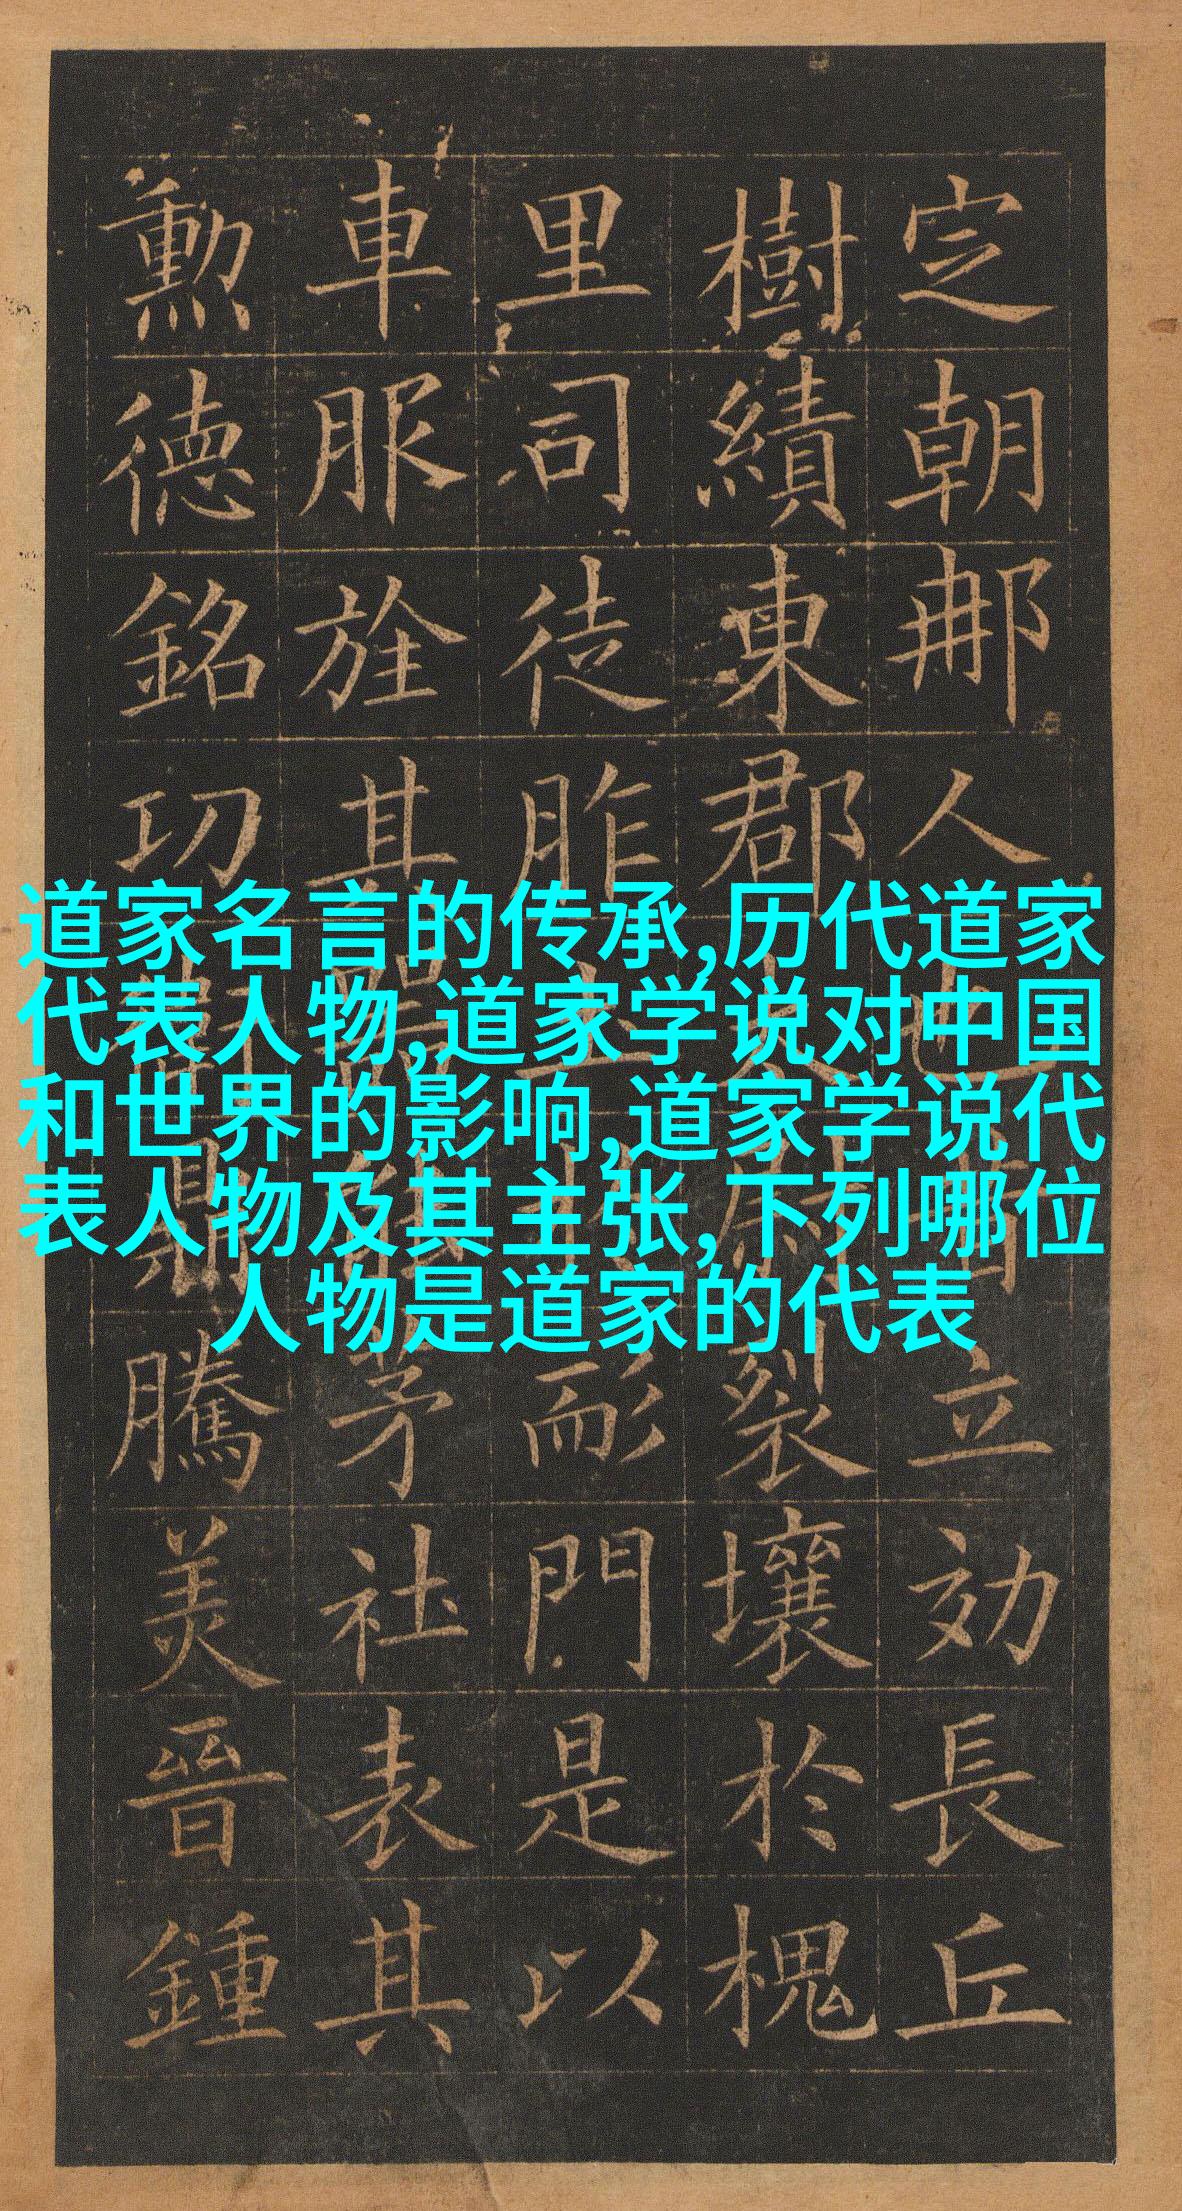 定朝那人也昔立効長丘
樹績東郡太尉裂壤於槐
里司徒胙土於耏門是以
車服旌其器能茅社表其
勲德銘功衛鼎騰美晉鍾
道家名言的传承,历代道家
代表人物,道家学说对中国
和世界的影响,道家学说代
表人物及其主张,下列哪位
人物是道家的代表